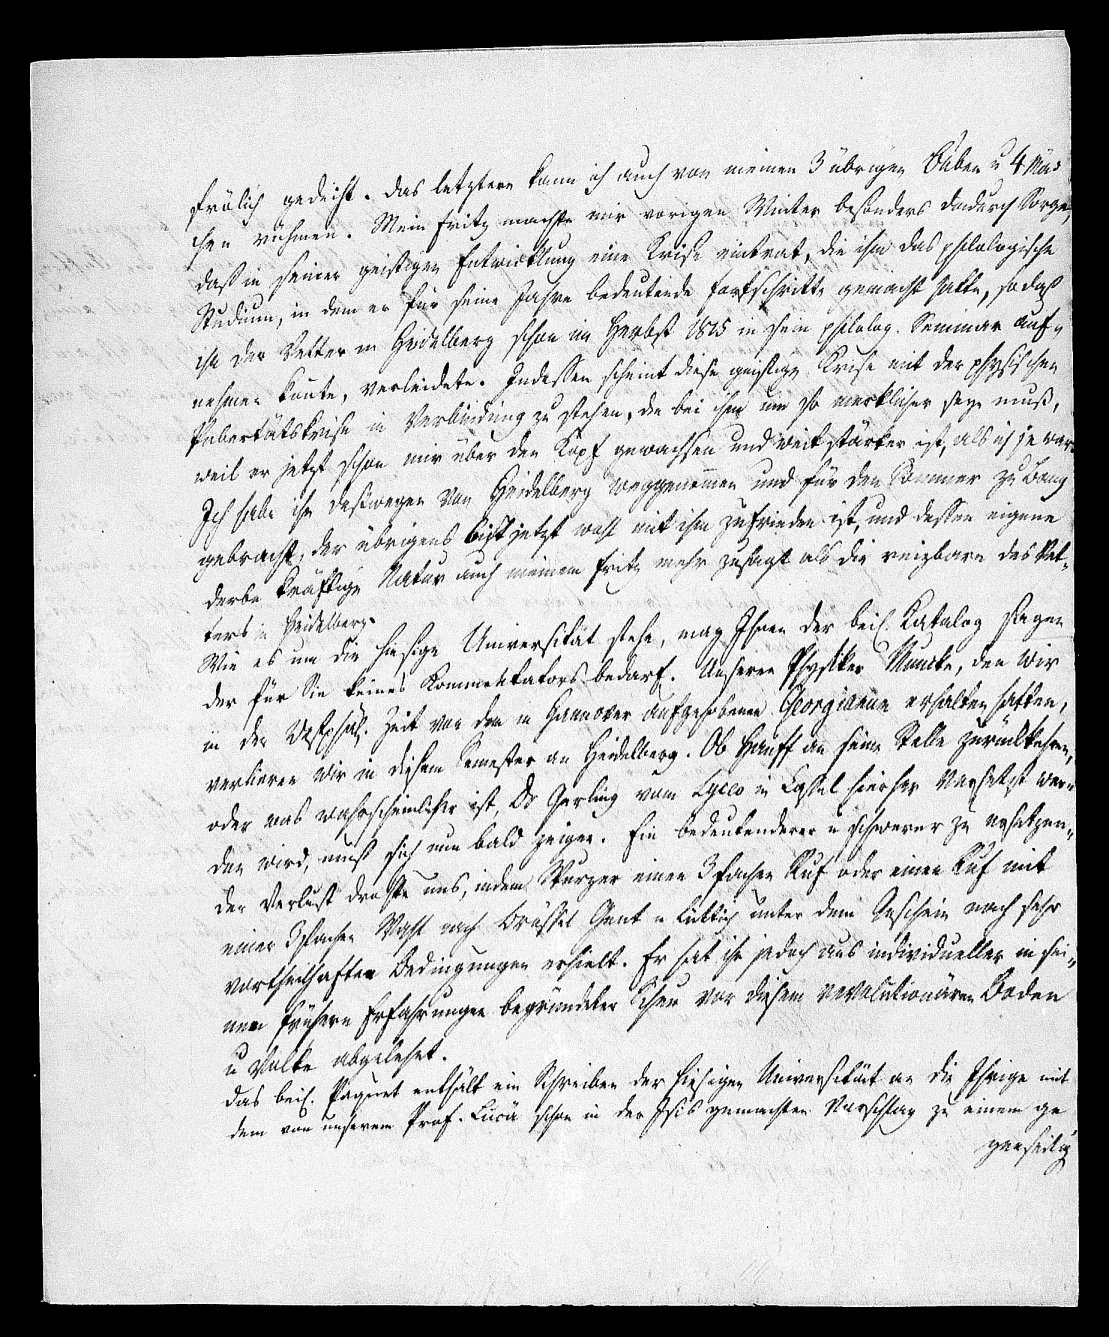 frölich gedeiht. Das letztere kann ich auch von meinen 3 übrigen Buben u 4 Mäd
chen rühmen. Mein Fritz machte mir vorigen Winter besonders dadurch Sorge,
daß in seiner geistigen Entwicklung eine Krise eintrat, die ihm das philologische
Studium, in dem er für seine Jahre bedeutende Fortschritte gemacht hatte, so daß
ihn der Vetter in Heidelberg schon im Herbst 1815 in sein philolog. Seminar auf-
nehmen konnte, verleidete. Indessen scheint diese geistige Krise mit der physischen
Pubertätskrise in Verbindung zu stehen, die bei ihm um so merklicher seyn muß,
weil er jetzt schon mir über den Kopf gewachsen und weit stärker ist, als ich je war.
Ich habe ihn deßwegen von Heidelberg weggenommen und für den Sommer zu Bang
gebracht, der übrigens bis jetzt wohl mit ihm zufrieden ist, und dessen eigene
derbe kräftige Natur auch meinem Fritz mehr zusagt als die reizbare des Vet-
ters in Heidelberg.
Wie es um die hiesige Universität stehe, mag Ihnen der beil. Katalog sagen
der für Sie keines Kommentators bedarf. Unseren Physiker Muncke, den wir
in der Westphäl. Zeit von dem in Hannover aufgehobenen Georgianum erhalten hatten,
verlieren wir in diesem Semester an Heidelberg. Ob Hauff an seine Stelle zurückkehren,
oder was wahrscheinlicher ist, Dr Gerling vom Lyceo in Cassel hierher versetzt wer-
den wird, muß sich nun bald zeigen. Ein bedeutenderer u schwerer zu ersetzen-
der Verlust drohte uns, indem Wurzer einen 3fachen Ruf oder einen Ruf mit
einer 3fachen Wahl nach Brüssel Gent u Lüttich unter dem Anschein nach sehr
vortheilhaften Bedingungen erhielt. Er hat ihn jedoch aus individueller in sei-
nen frühern Erfahrungen begründeter Scheu vor diesem revolutionären Boden
u Volke abgelehnt.
Das beil. Paquet enthält ein Schreiben der hiesigen Universität an die Ihrige mit
dem von unserem Prof. Lucä schon in der Isis gemachten Vorschlag zu einem ge
genseitig